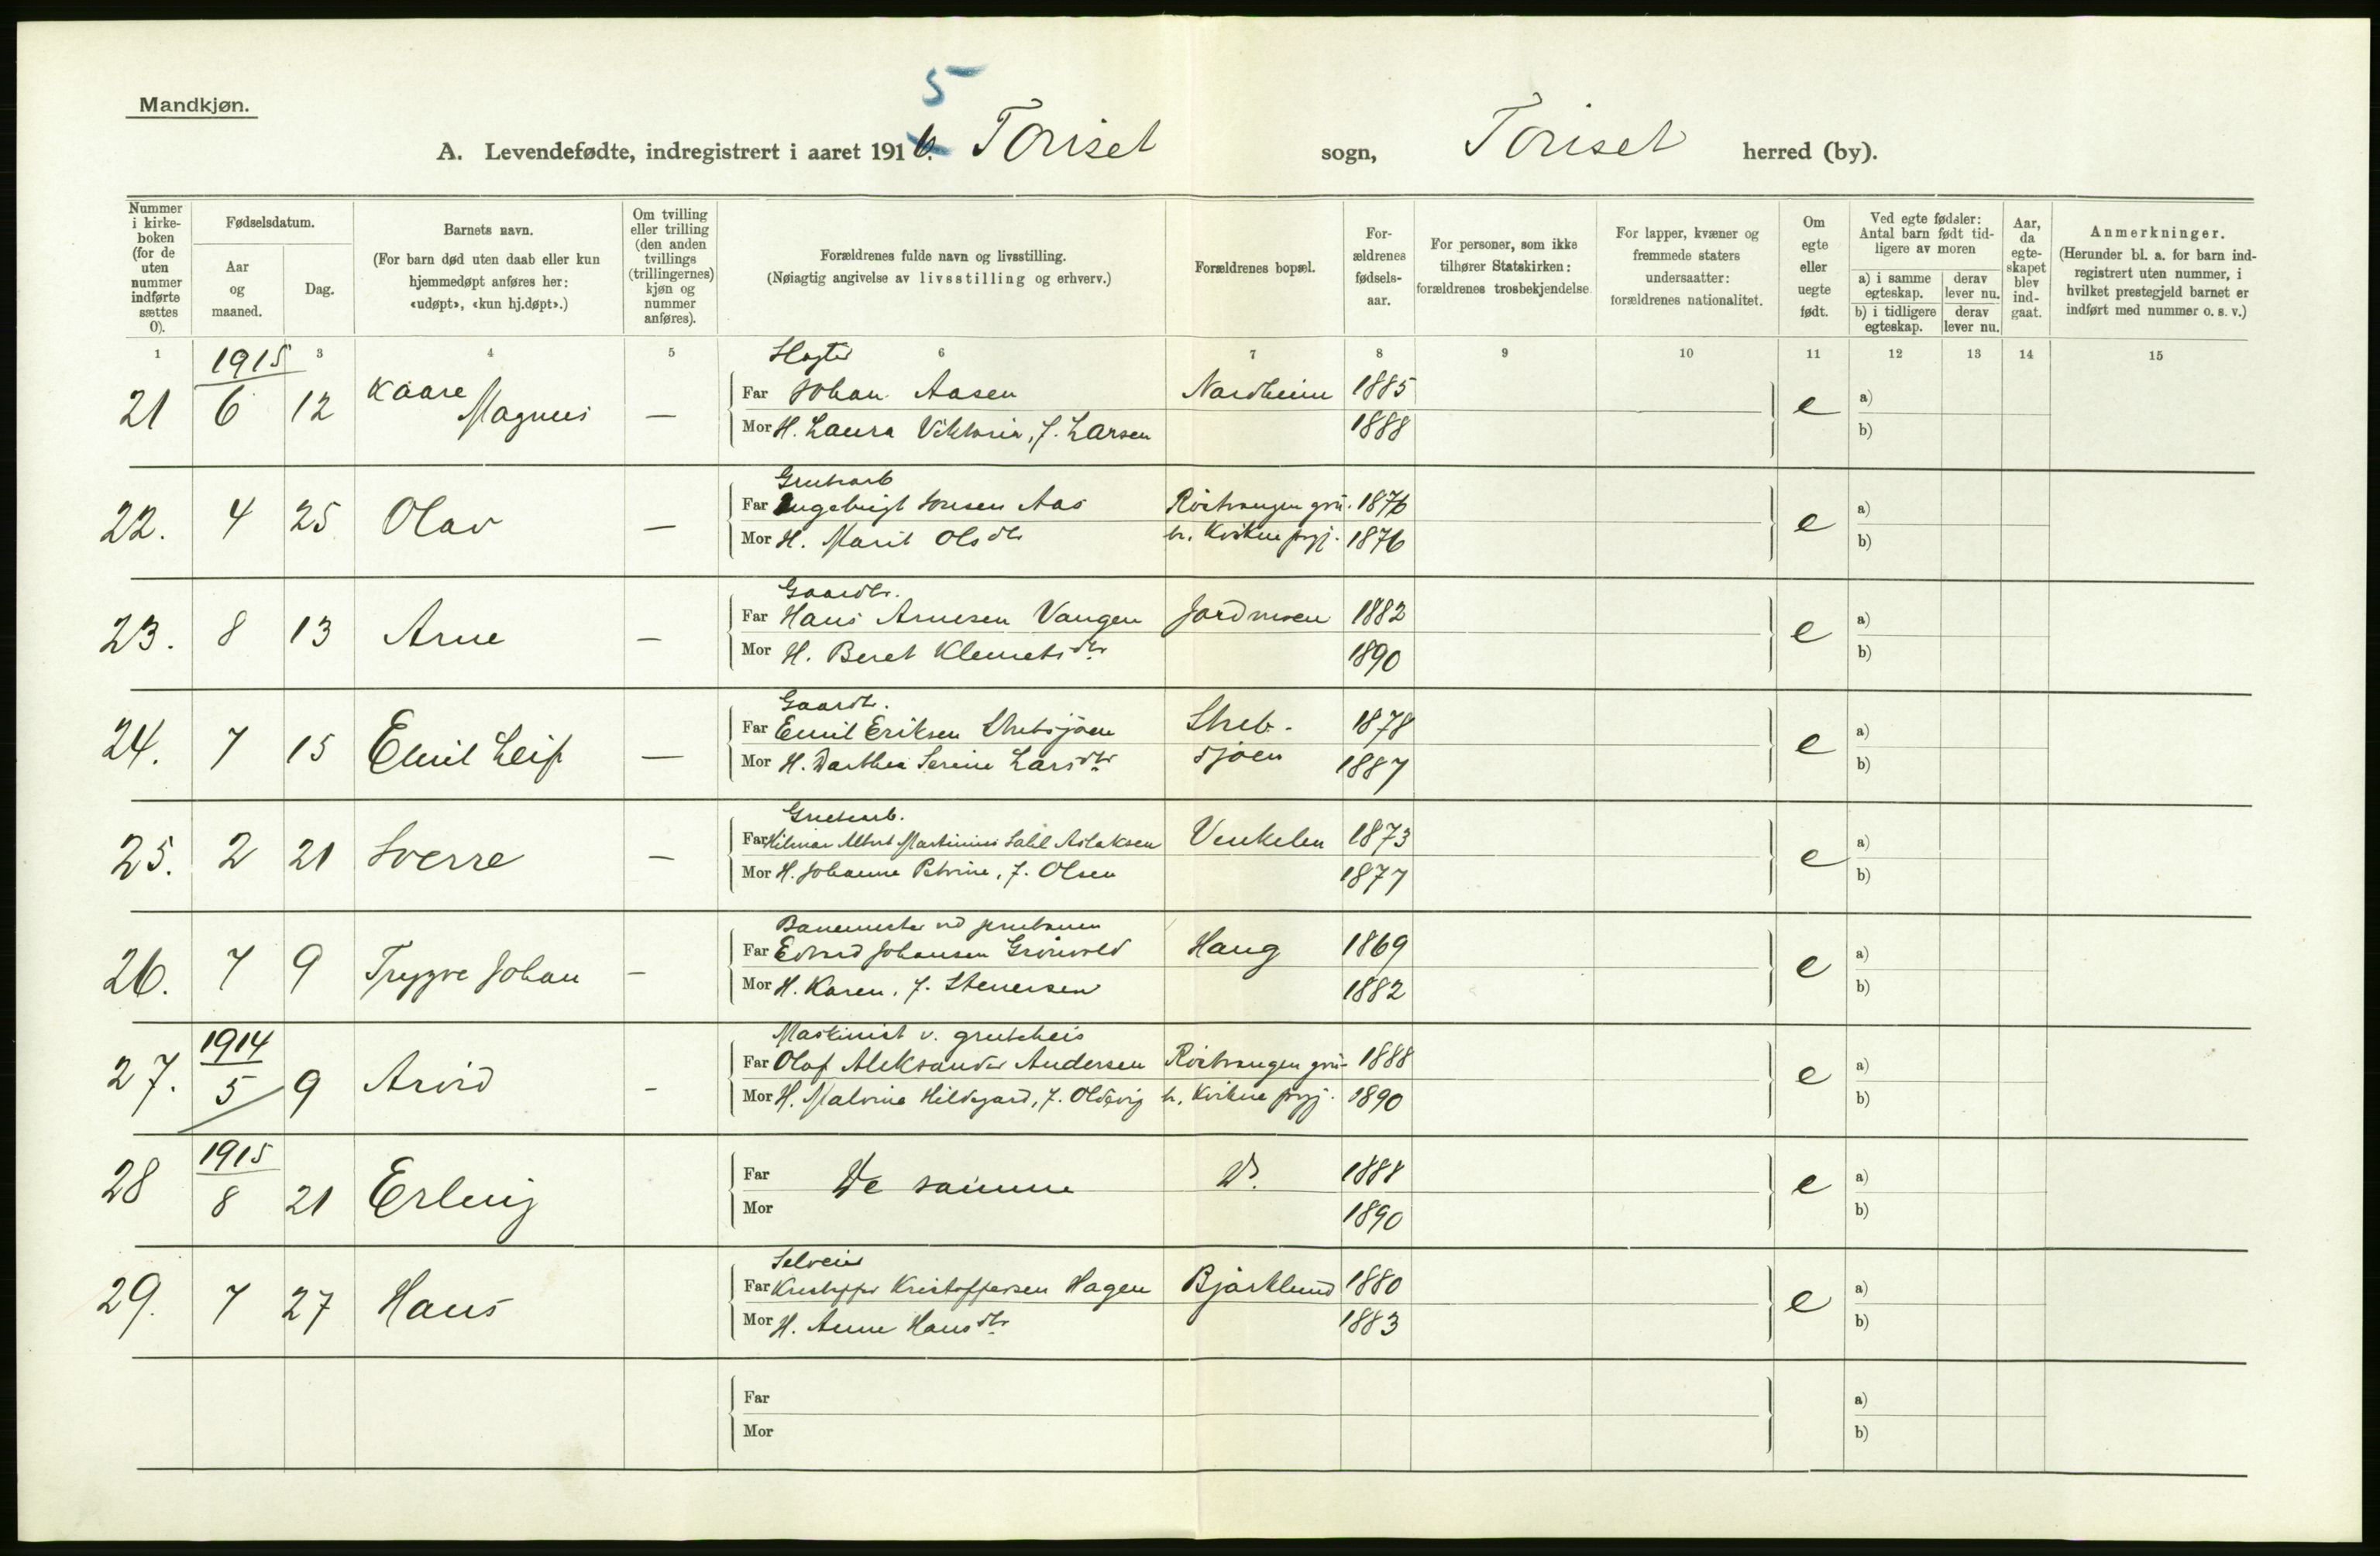 Mandkjøn.
5
A. Levendefødte, indregistrert i aaret 1916. Tönset sogn, Tönset herred (by).
Nummer i kirkeboken (for de uten nummer indførte sættes 0).
Fødselsdatum.
Aar og maaned.
Dag.
Barnets navn.
(For barn død uten daab eller kun hjemmedøpt anføres her: «udøpt», «kun hj.døpt».)
Om tvilling eller trilling (den anden tvillings (trillingernes) kjøn og nummer anføres).
Forældrenes fulde navn og livsstilling.
(Nøiagtig angivelse av livsstilling og erhverv.)
Forældrenes bopæl.
Forældrenes fødselsaar.
For personer, som ikke tilhører Statskirken: forældrenes trosbekjendelse.
For lapper, kvæner og fremmede staters undersaatter: forældrenes nationalitet.
Om egte eller uegte født.
Ved egte fødsler: Antal barn født tidligere av moren
a) i samme egteskap.
derav lever nu.
b) i tidligere egteskap.
derav lever nu.
Aar, da egteskapet blev indgaat.
Anmerkninger.
(Herunder bl. a. for barn indregistrert uten nummer, i hvilket prestegjeld barnet er indført med nummer o. s. v.)
1 1915 3 4 5 6 7 8 9 10 11 12 13 14 15
21 6 12 Kaare Magnus —
Far Johan Aasen Nordheim 1885 e a)
Mor H. Laura Viktoria, f. Larsen 1888 b)
Grubearb
22. 4 25 Olav —
Far Ingebrigt Jonsen Aas Röstvangen gru- 1876 e a)
Mor H. Marit Olsdtr br. Kvikne prgj. 1876 b)
Gaardbr.
23. 8 13 Arne —
Far Hans Arnesen Vangen Jordmoen 1882 e a)
Mor H. Beret Klemetsdtr 1890 b)
Gaardbr.
24. 7 15 Emil Leif —
Far Emil Eriksen Stubsjöen Stub- 1878 e a)
Mor H. Darthea Serine Larsdtr sjöen 1887 b)
Grubearb.
25. 2 21 Sverre —
Far Hilmar Albert Martinius Aslaksen 1873 e a)
Mor H. Johanne Petrine, f. Olsen 1877 b)
Banemester ved
26. 7 9 Trygve Johan —
Far Edvard Johansen Grönvold Haug 1869 e a)
Mor H. Karen, f. Stenersen 1882 b)
Maskinist v. grubeheis
27. 1914 5 9 Arvid -
Far Olaf Aleksander Andersen Röstvangen gru- 1888 e a)
Mor H. Malvine Hildegard, f. br. Kvikne prgj. 1890 b)
28 1915 8 21 Erling
Far De samme D. 1888 e a)
Mor 1890 b)
Selveier
29. 7 27 Hans
Far Kristoffer Kristoffersen Hagen Björklund 1880 e a)
Mor H. Anne Hansdtr 1883 b)
Far a)
Mor b)